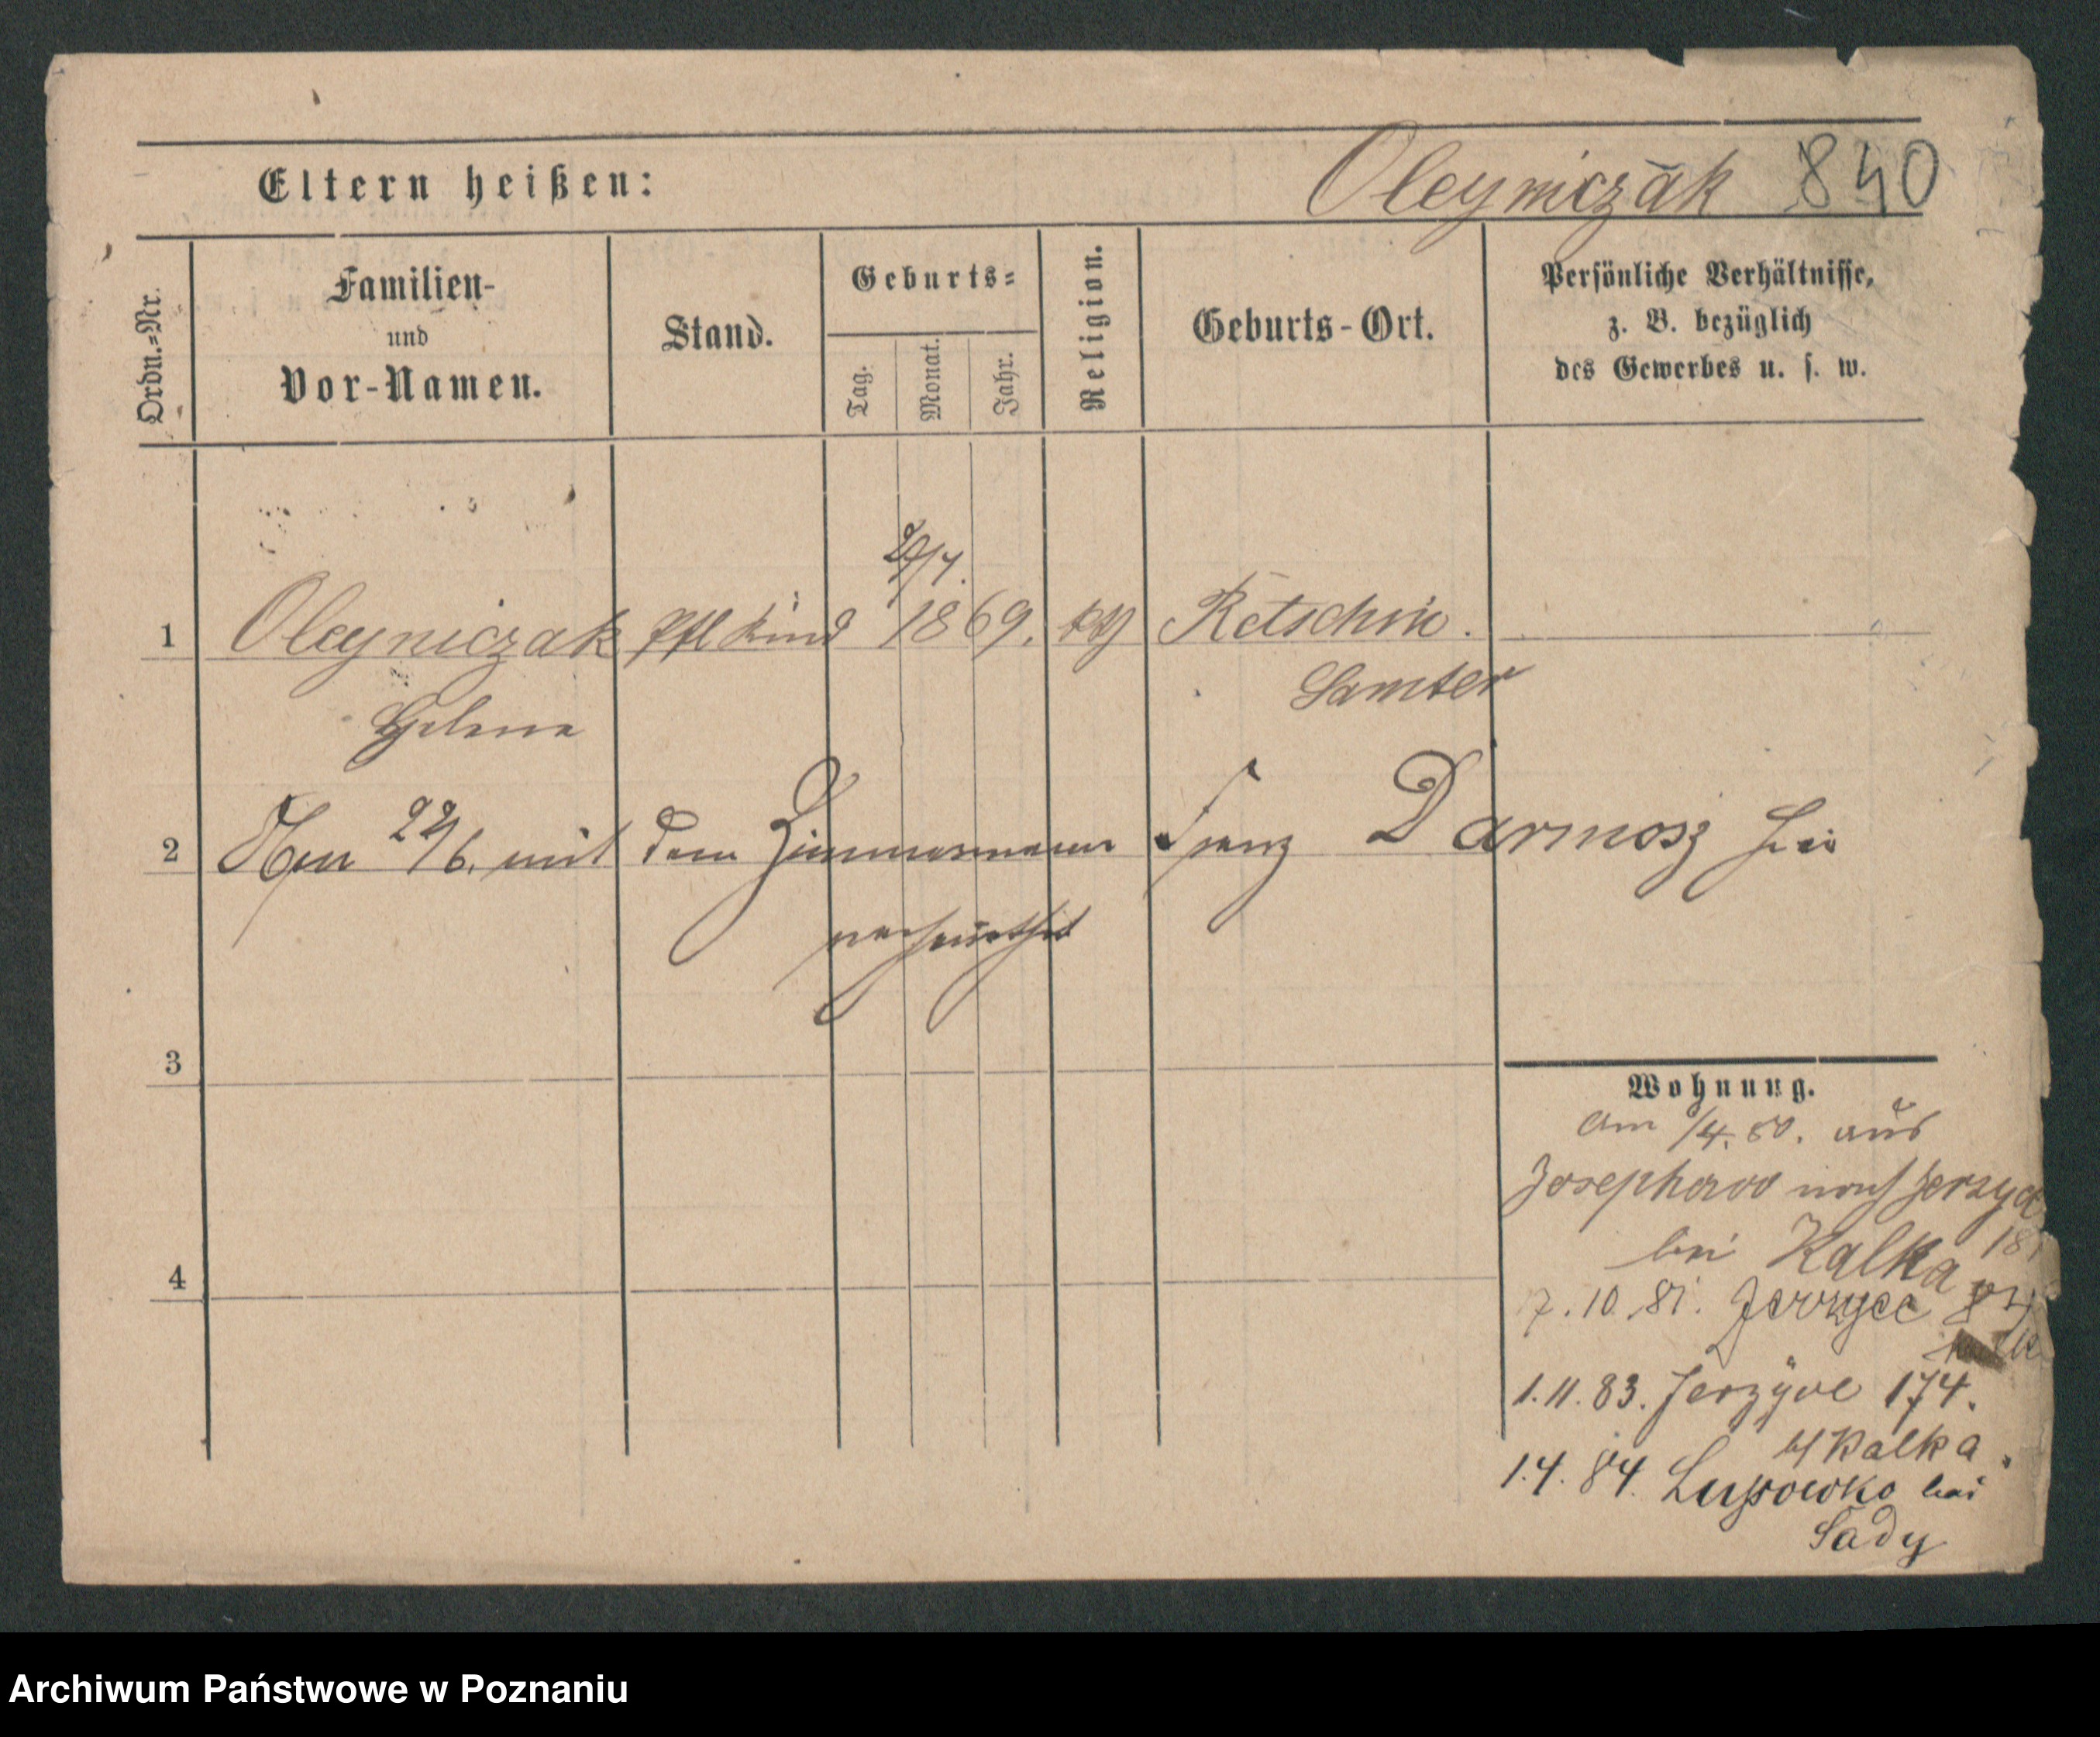 Eltern heißen:
Oleyniczak 840
Ordn.=Nr.
Familien-
und
Vor-Namen.
Stand.
Geburts=
Tag.
Monat.
Jahr.
Religion.
Geburts-Ort.
Persönliche Verhältnisse,
z. B. bezüglich
des Gewerbes u. s. w.
1 Oleyniczak Pfl Kind 1869. Retschin.
Helena Samter
2 mit dem Zimmermann Franz Darmosz hier
verheirathet
3
4
Wohnung.
am 1/4. 80. aus
Josephowo nach Jerzyce
bei Kalka 18
7. 10. 81. Jerzyce
1. 11. 83. Jerzyce 174.
b/ Kalka.
1. 4. 84. Lussowko bei
Sady
Archiwum Państwowe w Poznaniu